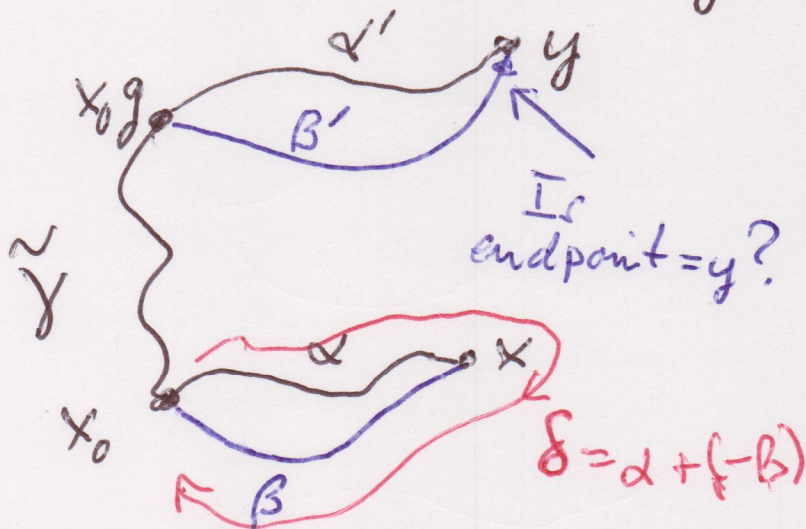 α' y
x₀g
β'
Is
endpoint = y?
γ̃
α x
x₀
δ = α + (-β)
β